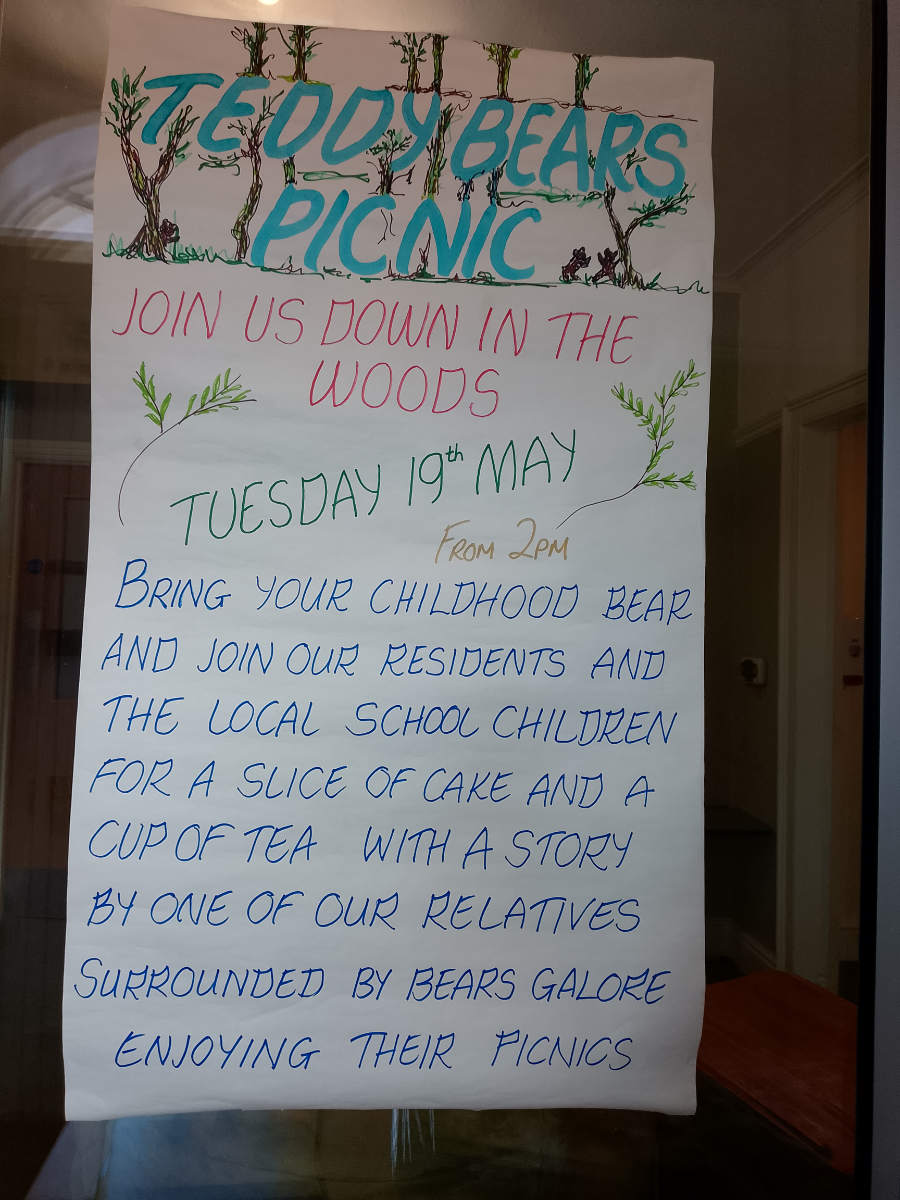 TEDDY BEARS
PICNIC
JOIN US DOWN IN THE
WOODS
TUESDAY 19th MAY
FROM 2PM
BRING YOUR CHILDHOOD BEAR
AND JOIN OUR RESIDENTS AND
THE LOCAL SCHOOL CHILDREN
FOR A SLICE OF CAKE AND A
CUP OF TEA WITH A STORY
BY ONE OF OUR RELATIVES
SURROUNDED BY BEARS GALORE
ENJOYING THEIR PICNICS